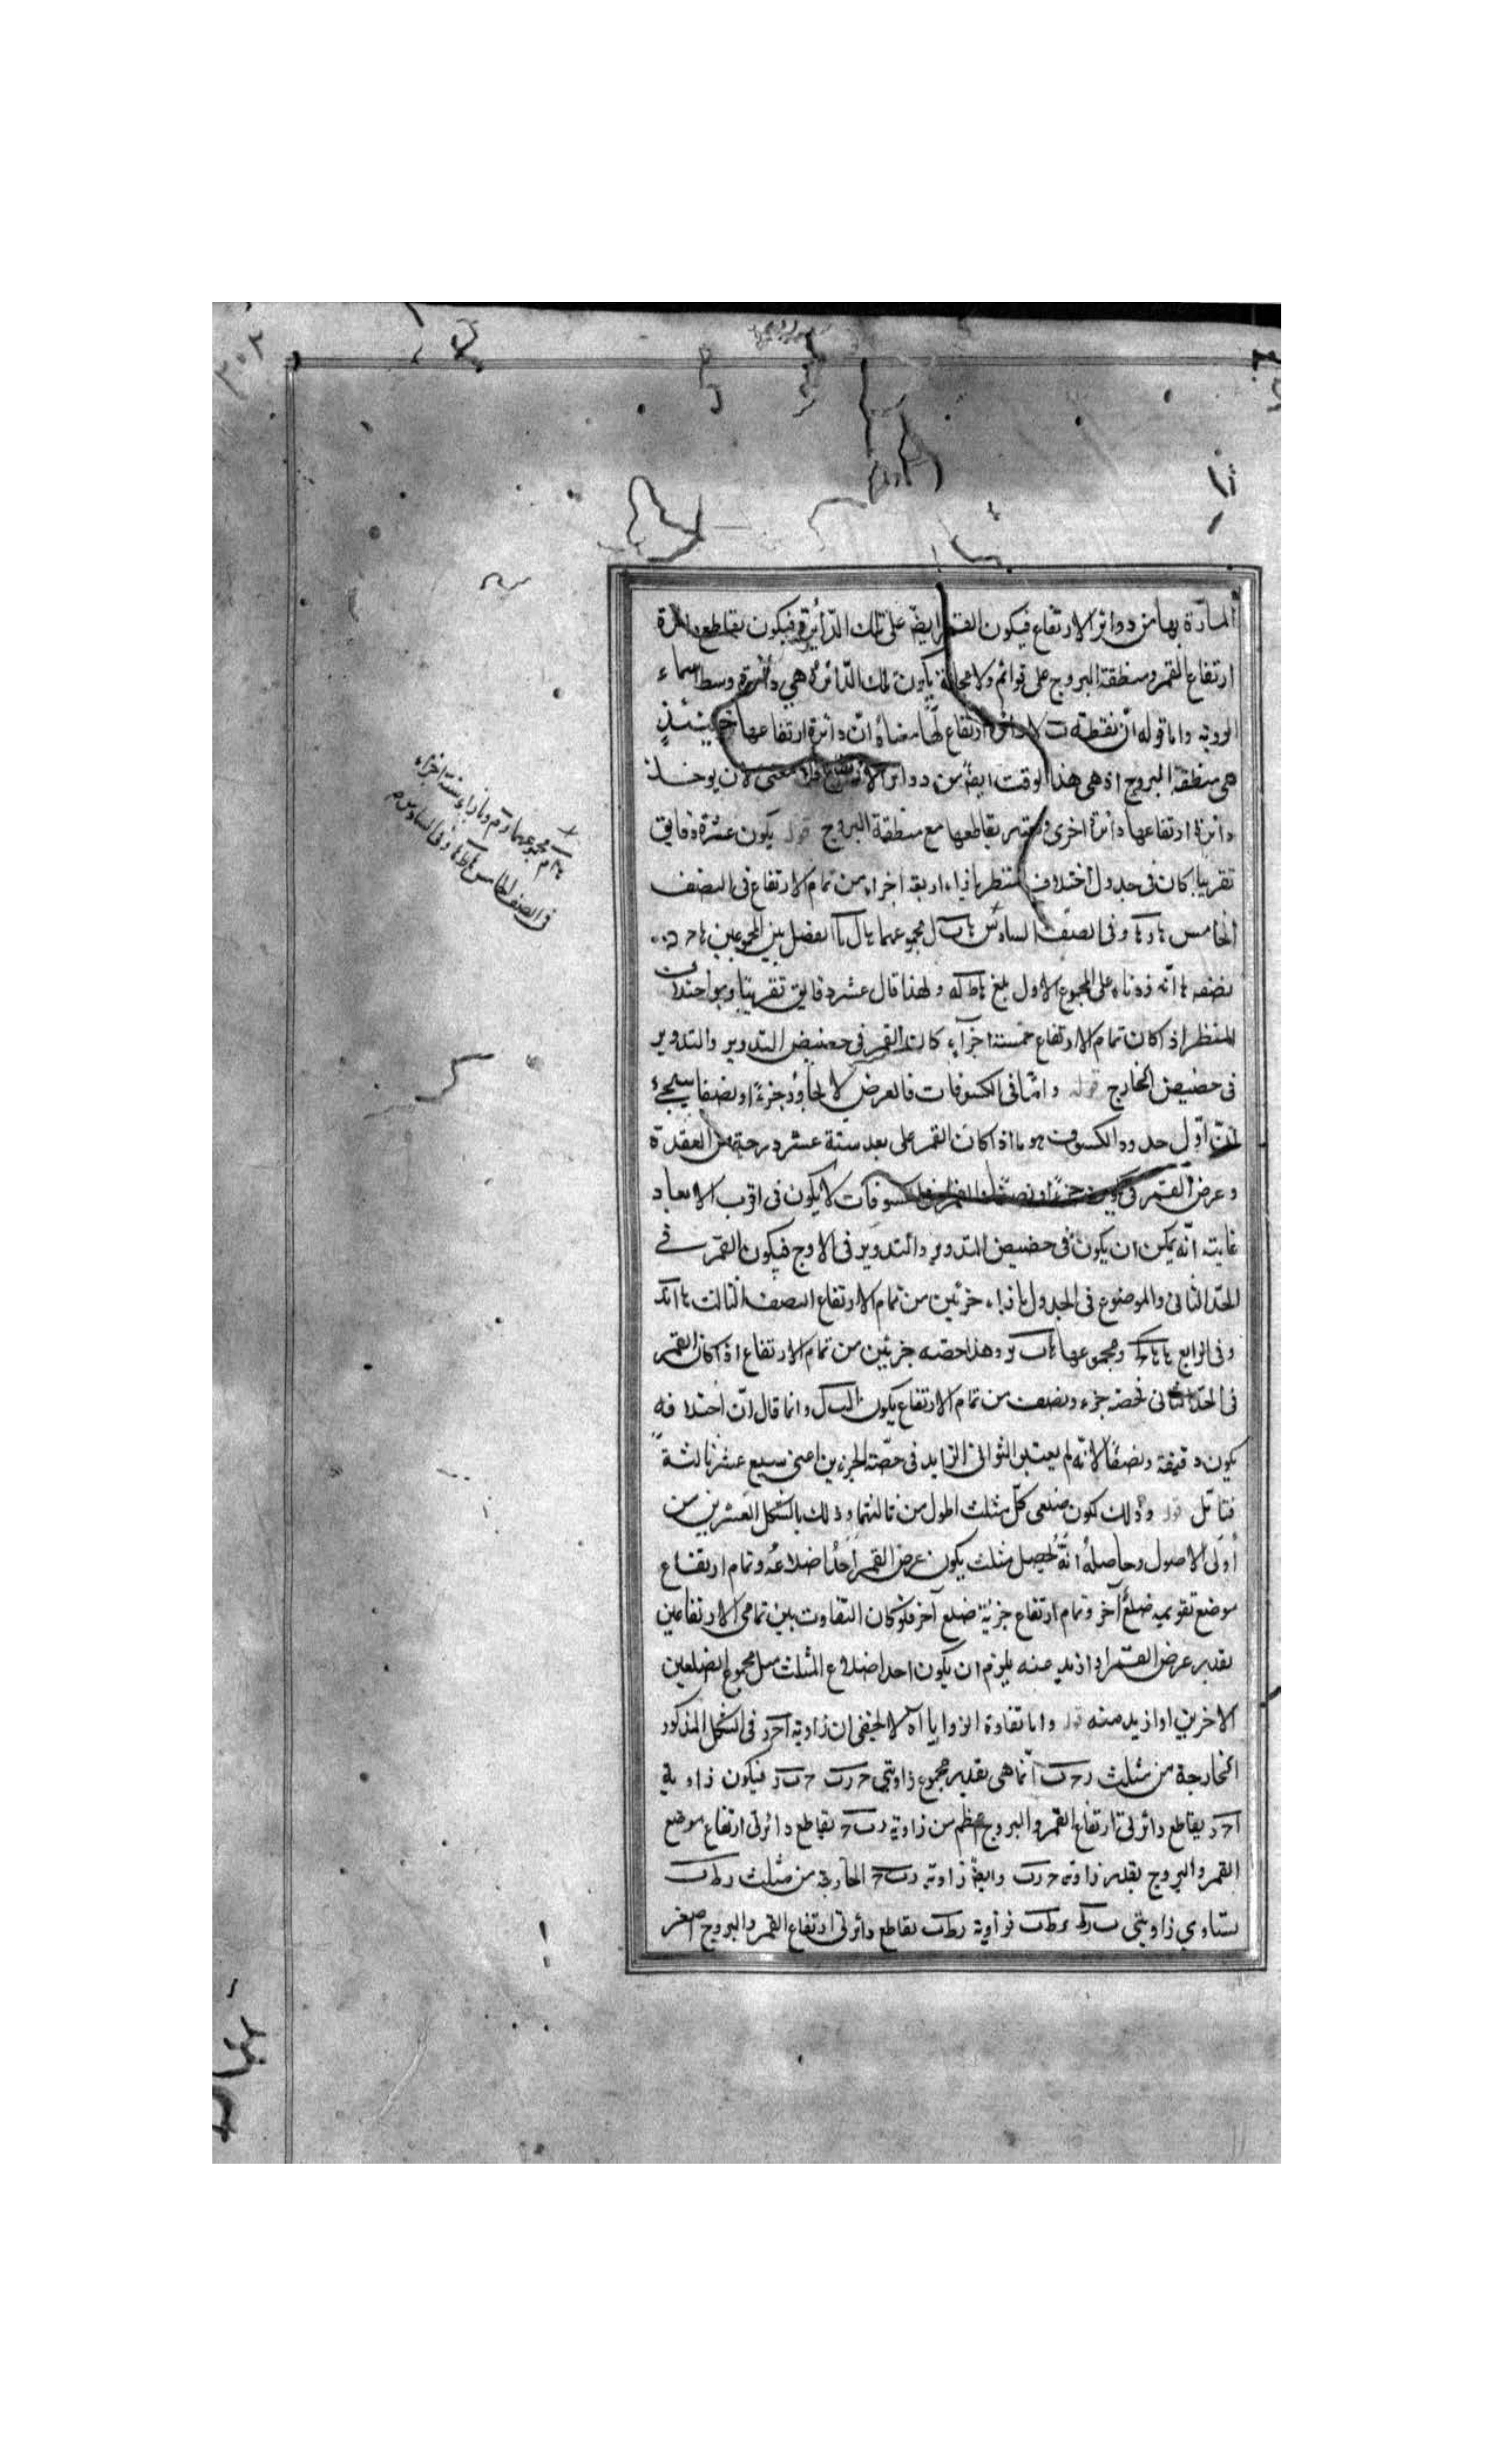 المارة بها من دوائر الارتفاع فيكون القمر ايضا على تلك الدائرة فيكون تقاطع دائرة
ارتفاع القمر ومنطقة البروج على قوائم ولا محالة يكون تلك الدائرة هي دائرة وسط سماء
الروية واما قوله ان نقطة ب لا دائرة ارتفاع لها معناه ان دائرة ارتفاعها حينئذ
هى منطقة البروج اذ هى هذا الوقت ايضا من دوائر الارتفاع فلا معنى لان يوخذ
دائرة ارتفاعها دائرة اخرى ويعتبر تقاطعها مع منطقة البروج قوله يكون عشرة دقايق
تقريبا كان فى جدول اختلاف المنظر بازاء اربعة اجزاء من تمام الارتفاع فى الصف
الخامس وفى الصف السادس مجموعهما الفضل بين المجموعين
نصفه زدناه على المجموع الاول بلغ ولهذا قال عشر دقايق تقريبا وهو اختلاف
المنظر اذ كان تمام الارتفاع خمسة اجزاء كان القمر فى حضيض التدوير والتدوير
فى حضيض الخارج قوله واما فى الكسوفات فالعرض لا يجاوز جزءا ونصفا سيجىء
ان اول حدود الكسوف هو ما اذا كان القمر على بعد ستة عشر درجة من العقدة
وعرض القمر جزءا ونصفا الكسوفات لا يكون فى اقرب الابعاد
غايته انه يمكن ان يكون فى حضيض التدوير والتدوير فى الاوج فيكون القمر فى
الحد الثانى والموضوع فى الجدول بازاء جزئين من تمام الارتفاع الصف الثالث
وفى الرابع ومجموعهما وهذا حصه جزئين من تمام الارتفاع اذ كان القمر
فى الحد الثانى فحصه جزء ونصف من تمام الارتفاع يكون وانما قال ان اختلافه
يكون دقيقة ونصفا لانه لم يعتبر الثوالث الزايد فى حصة الجزءين اعنى سبع عشر ثالثة
فتامل قوله وذلك كون ضلعى كل مثلث اطول من ثالثهما وذلك بالشكل العشرين من
اولى الاصول وحاصله انه يحصل مثلث يكون عرض القمر احد اضلاعه وتمام ارتفاع
موضع تقويمه ضلع آخر وتمام ارتفاع جزئه ضلع آخر فلو كان التفاوت بين تمامى الارتفاعين
بقدر عرض القمر او ازيد منه يلزم ان يكون احد اضلاع المثلث مثل مجموع الضلعين
الاخرين او ازيد منه قوله واما تفاوة الزوايا آه لا يخفى ان زاوية احر فى الشكل المذكور
الخارجة من مثلث انما هى بقدر مجموع زاويتى فيكون زاوية
تقاطع دائرتى ارتفاع القمر والبروج اعظم من زاوية تقاطع دائرتى ارتفاع موضع
القمر والبروج بقدر زاوية وايضا زاوية الخارجة من مثلث
يساوى زاويتى فزاوية تقاطع دائرتى ارتفاع القمر والبروج اصغر
مجموعهما وبازاء ستة اجزاء
فى الصف الخامس وفى السادس
٣٠٣